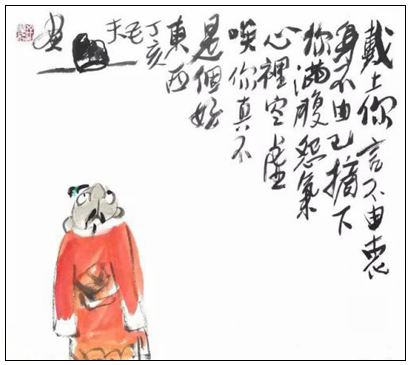 戴上你言不由衷
身不由己摘下
你滿腹怨氣
心裡空虛
唉你真不
是個好
東西
丁亥